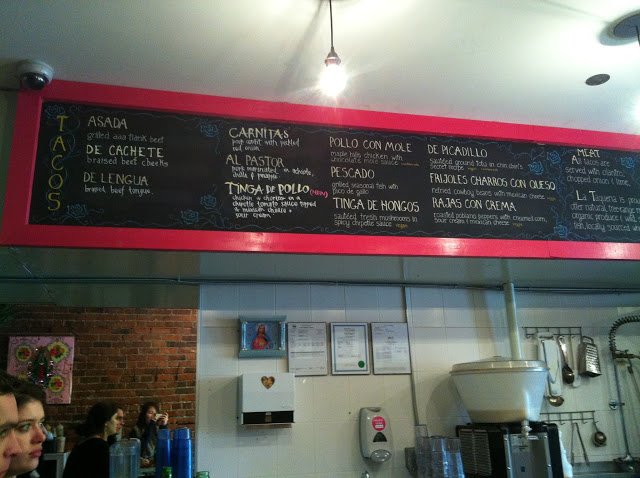 TACOS
ASADA
grilled aaa flank beef
DE CACHETE
braised beef cheeks
DE LENGUA
braised beef tongue
CARNITAS
pork confit with pickled
red onion
AL PASTOR
pork marinated in achiote,
chilis & pineapple
TINGA DE POLLO
chicken & chorizo in a
chipotle tomato sauce topped
w mexican cheese +
sour cream
POLLO CON MOLE
maple hills chicken with
chocolate mole sauce
PESCADO
grilled seasonal fish with
pico de gallo
TINGA DE HONGOS
sautéed fresh mushrooms in
spicy chipotle sauce vegan
DE PICADILLO
sautéed ground tofu in chin.chin's
secret recipe vegan
FRIJOLES CHARROS CON QUESO
refried cowboy beans with mexican cheese
RAJAS CON CREMA
roasted poblano peppers with creamed corn,
sour cream & mexican cheese
MEAT
All tacos are
served with cilantro,
chopped onion & lime.
La Taqueria is proud
other natural free-rang
organic produce &
fish, locally sourced when